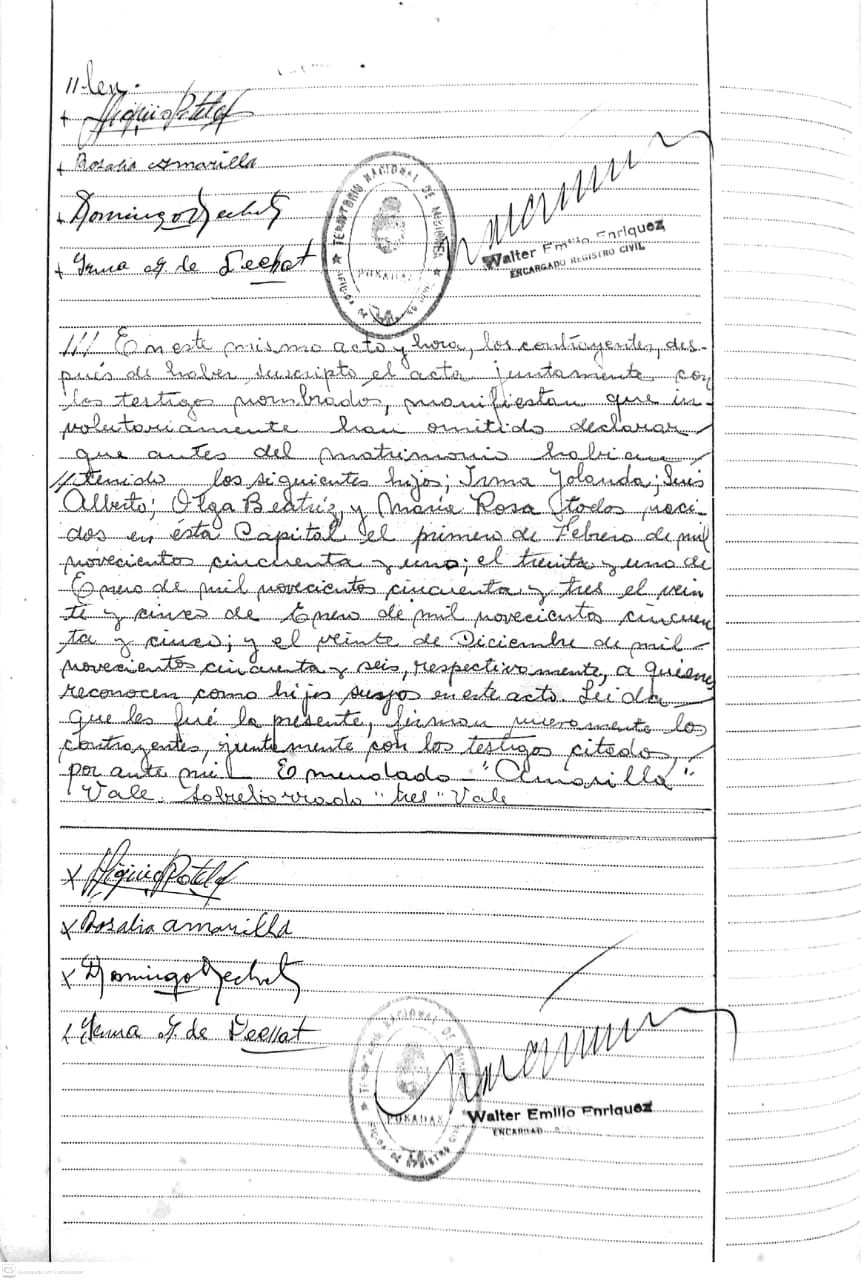 //-ley.
+ Higinio Potelef
+ Rosalia Amarilla
+ Domingo Dechat
+ Irma G. de Dechat
TERRITORIO NACIONAL DE MISIONES
POSADAS
Walter Emilio Enriquez
ENCARGADO REGISTRO CIVIL
/// En este mismo acto y hora, los contrayentes, des-
pués de haber suscripto el acta juntamente con
los testigos nombrados, manifiestan que in-
volutariamente han omitido declarar
que antes del matrimonio habian
//tenido los siguientes hijos; Irma Yolanda; Luis
Alberto; Olga Beatríz, y María Rosa todos naci-
dos en ésta Capital el primero de Febrero de mil
novecientos cincuenta y uno; el treinta y uno de
Enero de mil novecientos cincuenta y tres el vein
te y cinco de Enero de mil novecientos cincuen
ta y cinco; y el veinte de Diciembre de mil
novecientos cincuenta y seis, respectivamente, a quienes
reconocen como hijos suyos en este acto. Leida
que les fué la presente, firman nuevamente los
contrayentes, juntamente con los testigos citados,
por ante mi. Enmendado "Amarilla"
Vale. Sobreborrado "tres" Vale
x Higinio Potelef
x Rosalia Amarilla
x Domingo Dechat
x Irma G. de Dechat
TERRITORIO NACIONAL DE MISIONES
POSADAS
OFICINA DE REGISTRO CIVIL
Walter Emilio Enriquez
ENCARGADO
CS Escaneado con CamScanner